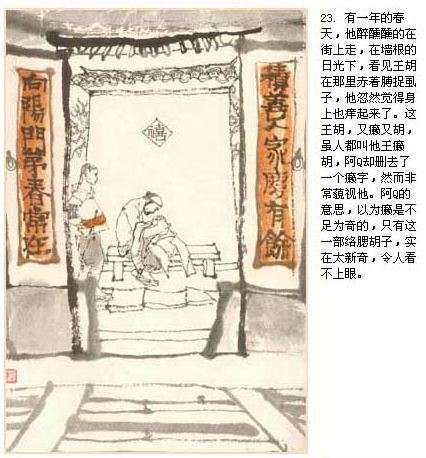 積善人家慶有餘
向陽門第春常在
23. 有一年的春
天，他醉醺醺的在
街上走，在墙根的
日光下，看见王胡
在那里赤着膊捉虱
子，他忽然觉得身
上也痒起来了。这
王胡，又癞又胡，
虽人都叫他王癞
胡，阿Q却删去了
一个癞字，然而非
常藐视他。阿Q的
意思，以为癞是不
足为奇的，只有这
一部络腮胡子，实
在太新奇，令人看
不上眼。